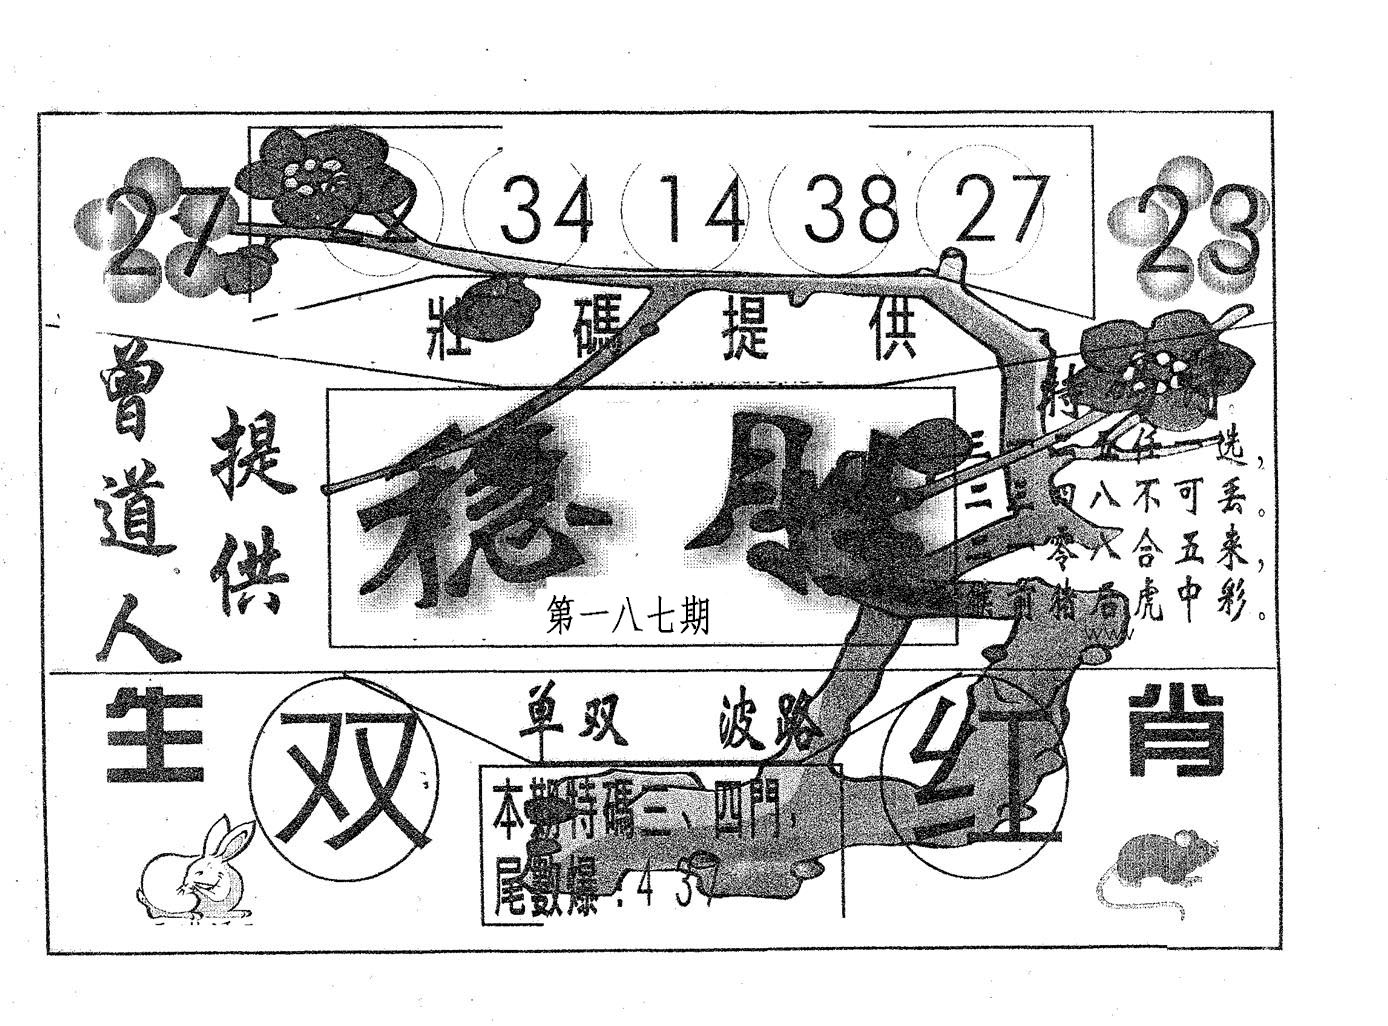 27 34 14 38 27 23
壯碼提供
曾道人
提供
稳胜
选，
四八不可丢。
零八合五来，
猪后虎中彩。
www
第一八七期
生
双
单双 波路
红
肖
本期特碼三、四門，
尾數爆：4 3 7